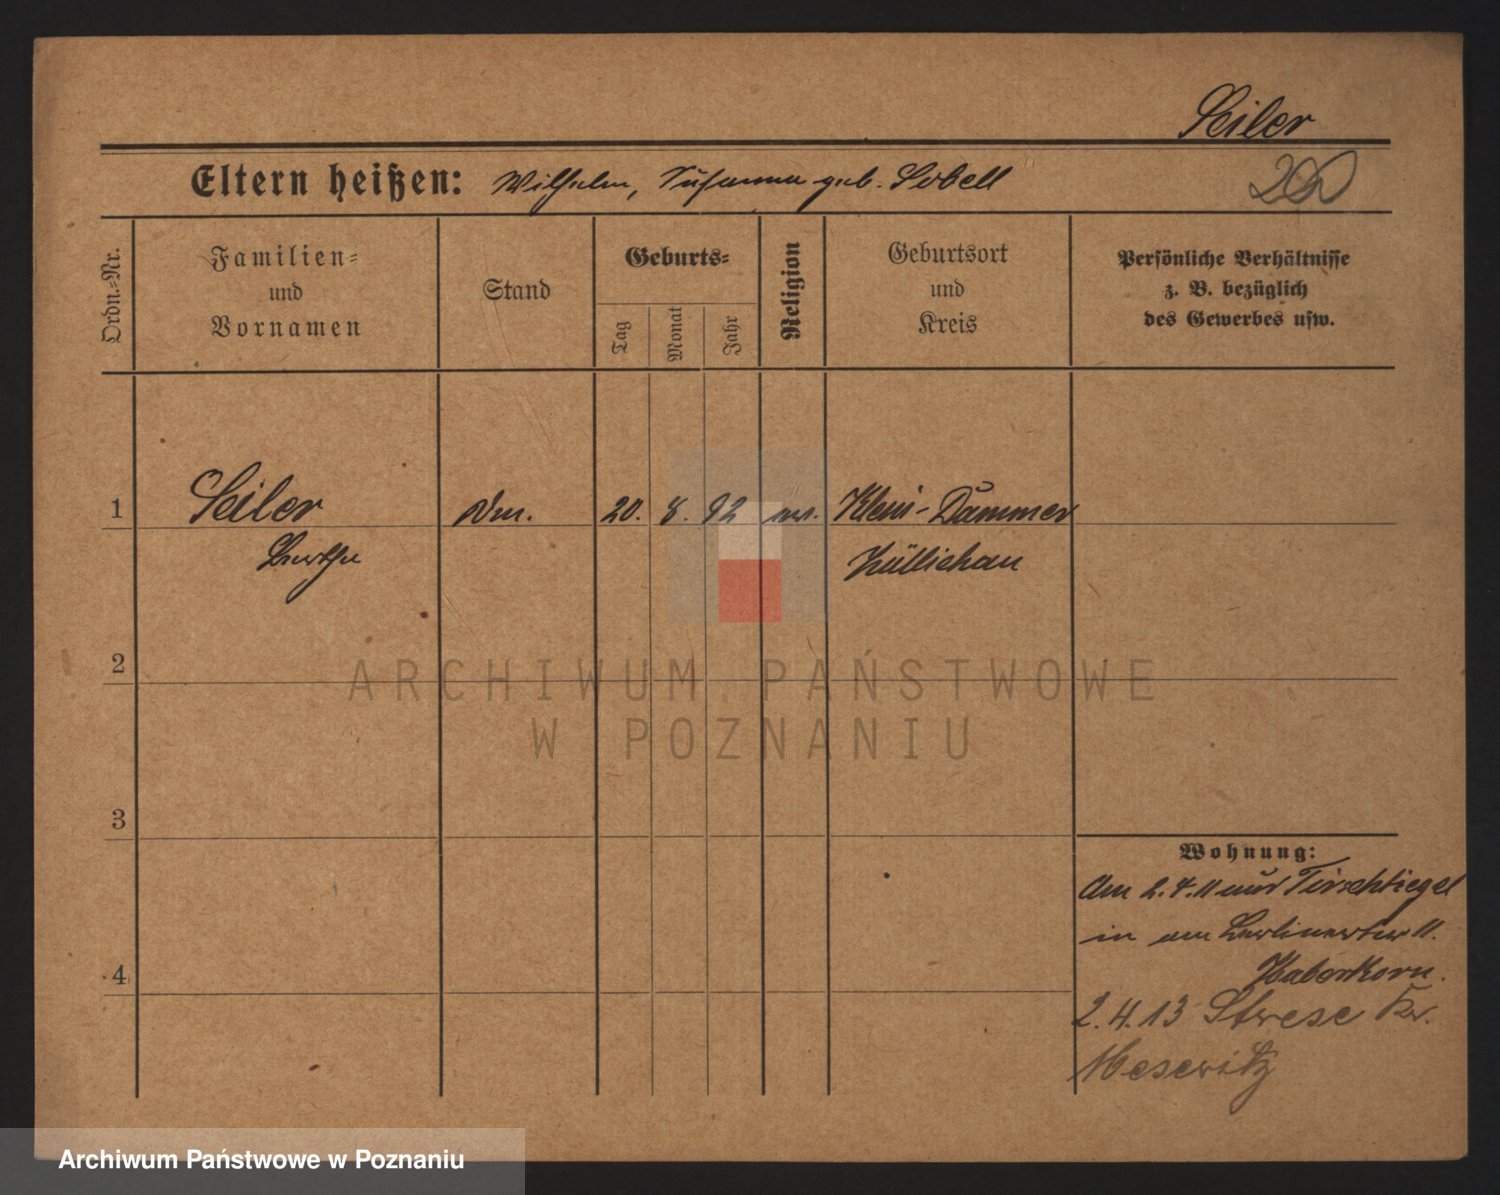 Seiler
Eltern heißen: Wilhelm, Susanna geb. Sobell
200
Ordn.-Nr.
Familien-
und
Vornamen
Stand
Geburts-
Tag
Monat
Jahr
Religion
Geburtsort
und
Kreis
Persönliche Verhältnisse
z. B. bezüglich
des Gewerbes usw.
1 Seiler 20. 8. 92 Klein-Dammer
Bertha Züllichau
2
ARCHIWUM PAŃSTWOWE
W POZNANIU
3
Wohnung:
Am 2.4.11 aus Tirschtiegel
in 11.
Haberkorn.
4
2.4.13 Strese Kr.
Meseritz
Archiwum Państwowe w Poznaniu